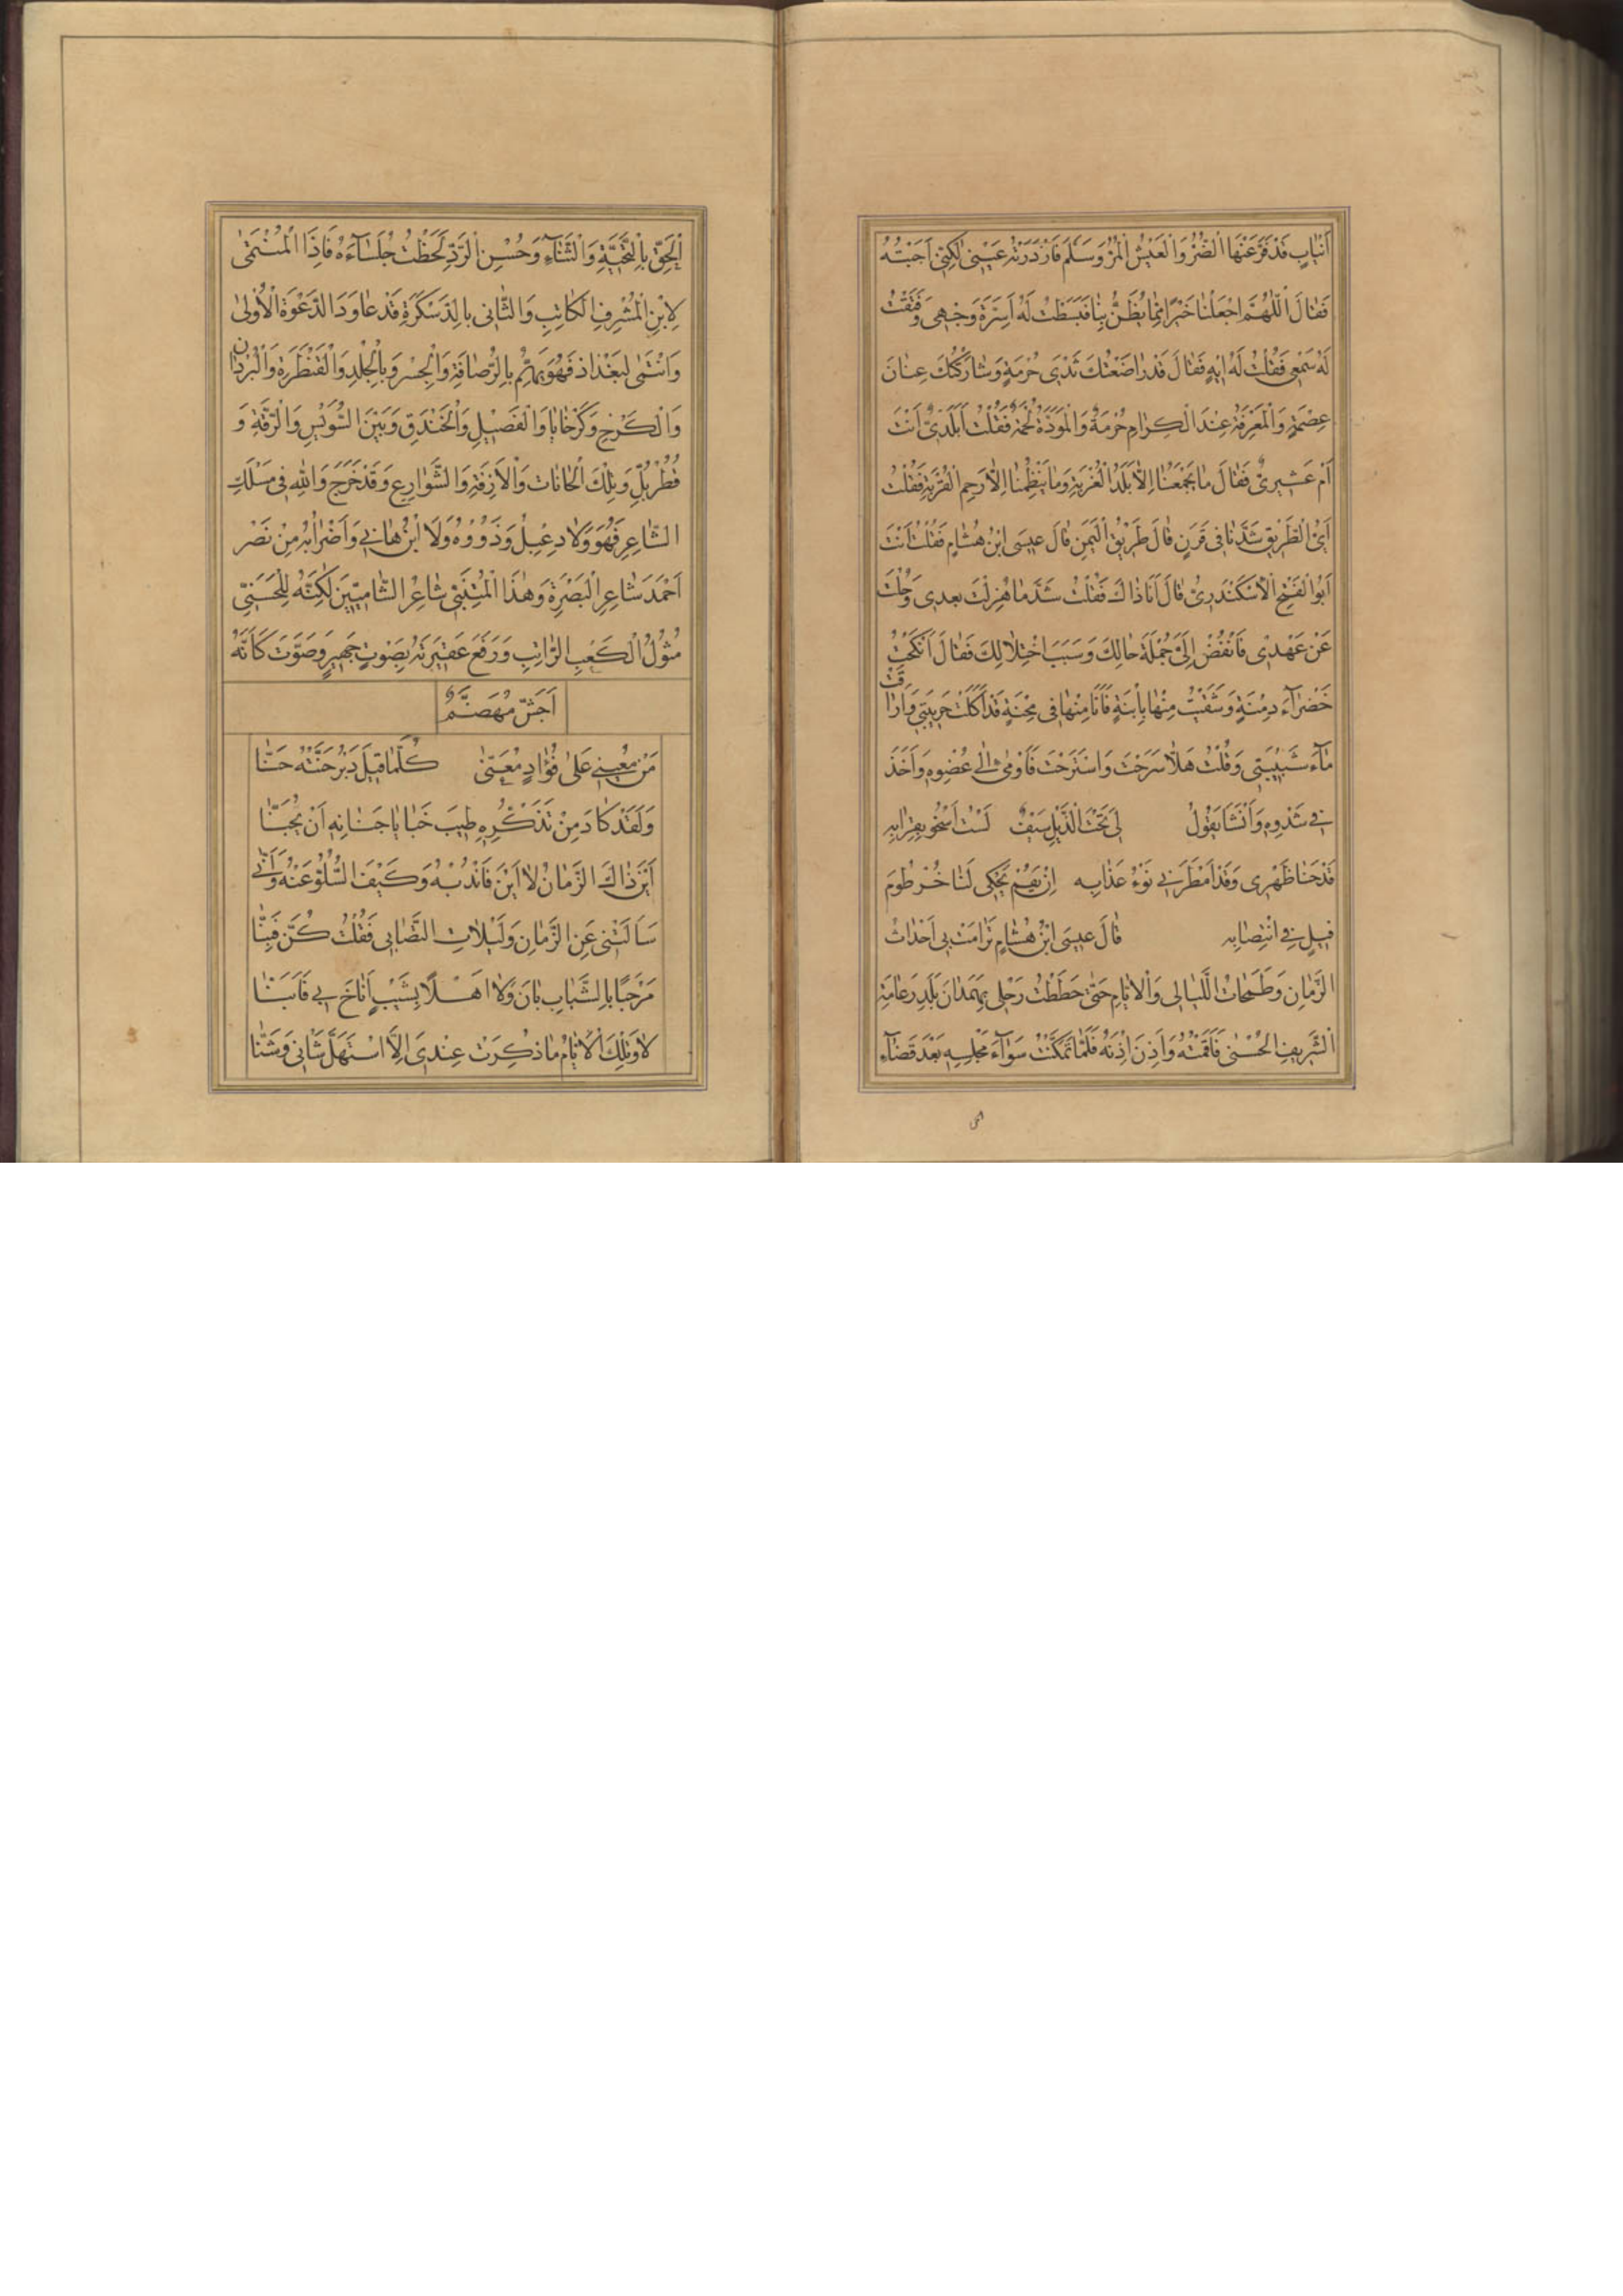 اَنْيابٍ قَدْ فَرَّعَنْهَا الْضُّرُّ وَالْعَيْشُ الْمُرُّ وَسَلَّمَ فَازْدَرَتْهُ عَيْنى لكِنّى اَجَبْتُهُ
فَقالَ اَللّهُمَّ اجْعَلْنا خَيْرًا مِمّا يُظَنُّ بِنا فَبَسَطْتُ لَهُ اَسِرَّةَ وَجْهى وَفَتَقْتُ
لَهُ سَمْعى فَقُلْتُ لَهُ ايهٍ فَقالَ قَدْ راضَعْتُكَ ثَدْىَ حُرْمَةٍ وَشارَكْتُكَ عِنانَ
عِصْمَةٍ وَالْمَعْرِفَةُ عِنْدَ الْكِرامِ حُرْمَةٌ وَالْمَوَدَّةُ لُحْمَةٌ فَقُلْتُ اَبَلَدِىٌّ اَنْتَ
اَمْ عَشيرىٌّ فَقالَ ما يَجْمَعُنا اِلّا بَلَدُ الْغُرْبَةِ وَما يَنْظِمُنا اِلّا رَحِمُ الْقُرْبَةِ فَقُلْتُ
اَىُّ الْطَّريقِ شَدَّنا فى قَرَنٍ قالَ طَريقُ الْيَمَنِ قالَ عيسَى ابْنُ هُشامٍ فَقُلْتُ اَنْتَ
اَبُو الْفَتْحِ الْاَسْكَنْدَرِىُّ قالَ اَنَا ذاكَ فَقُلْتُ شَدَّ ما هُزِلْتَ بعدى وَحُلْتَ
عَنْ عَهْدى فَانْفُضْ اِلَىَّ جُمْلَةَ حالِكَ وَسَبَبَ اخْتِلالِكَ فَقالَ اَنْكَحَنى
خَضْرآءَ دِمْنَةٍ وَشَقيتُ مِنْها بِابْنَةٍ فَاَنَا مِنْها فى مِحْنَةٍ قَدْ اَكَلَتْ حَريبَتى وَاَراقَتْ
مآءَ شَبيبَتى وَقُلْتُ هَلّا سَرَحْتَ وَاسْتَرَحْتَ فَاَوْمى الى عُضْوِهِ وَاَخَذَ
فى شَدْوِهِ وَاَنْشَا يَقُولُ لى تَحْتَ الْذَّيْلِ سَيْفٌ لَسْتُ اَسْخُو بِقِرابِهِ
قَدْ حَنا ظَهْرى وَقَدْ اَمْطَرَنى نَوْءُ عَذابِهِ اِنْ يَقُمْ يَحْكى لَنا خُرْطُومَ
فيلٍ فى انْتِصابِهِ قالَ عيسَى ابْنُ هُشامٍ تَرامَتْ بى اَحْداثُ
الزَّمانِ وَطَمَحاتُ اللَّيالى وَالْاَيّامِ حَتّى حَطَطْتُ رَحْلى بِهَمَدانَ بَلَدِ زَعامَةِ
الْشَّريفِ الْحُسْنى فَاَقَمْتُهُ وَاَذِنَ اِذْنَهُ فَلَمّا تَمَكَّنْتُ سَوآءَ مَجْلِسِهِ بَعْدَ قَضآءِ
الْحَقِّ بِالتَّحِيَّةِ وَالْثَّنآءِ وَحُسْنِ الْرَّدِّ لَحَظْتُ جُلَسآءَهُ فَاِذَا الْمُنْتَمى
لِابْنِ الْمُشْرِفِ الْكاتِبِ وَالثّانى بِالدَّسْكَرَةِ قَدْ عاوَدَ الدَّعْوَةَ الْاُولى
وَانْتَمى لِبَغْداذ فَهُوَ يَهْتِمُّ بِالرُّصافَةِ وَالْجِسْرِ وَبِالْخُلْدِ وَالْقَنْطَرَةِ وَالْبَرَدانِ
وَالْكَرْخِ وَكَرْخايا وَالْفَصيلِ وَالْخَنْدَقِ وَبَيْنَ السُّوَيْسِ وَالْرَّقَّةِ وَ
قُطْرُبُّلَ وَتِلْكَ الْحانات وَالْاَزِقَّةِ وَالشَّوارِعِ وَقَدْ خَرَجَ وَاللهِ فى مَسْلَكِ
الشّاعِرِ فَهُوَ وَلا دِعْبِلٌ وَذَوُوهُ وَلَا ابْنُ هانى وَاَضْرابُهُ مِنْ نَصْر
اَحْمَدَ شاعِرِ الْبَصْرَةِ وَهذَا الْمُتَنَبّى شاعِرُ الشّامِيّينَ لكِنَّهُ لِلْحَسَنِىّ
مُثُولُ الْكَعْبِ الرّاتِبِ وَرَفَعَ عَقيرَتَهُ بِصَوتٍ جَهيرٍ وَصَوَّتَ كَاَنَّهُ
اَجَشٌّ مُهَضَّمٌ
مَنْ مُعينى عَلى فُؤادٍ مُعَنّى كُلَّما قيلَ دَيْرُ حَنَّتَهُ حَنّا
وَلَقَدْ كادَ مِنْ تَذَكُّرِهِ طيبَ خَبايا جَنانِهِ اَنْ يُجَنّا
اَيْنَ ذاكَ الزَّمانُ لا اَيْنَ فَانْدُبْهُ وَكَيْفَ السُّلُوُّ عَنْهُ وَاَنّى
سَاَلَتْنى عَنِ الزَّمانِ وَلَيْلاتِ التَّصابى فَقُلْتُ كُنَّ فَبِنّا
مَرْحَبًا بِالشَّبابِ بانَ وَلا اَهْلًا بِشَيْبٍ اَناخَ بى فَاَبَنّا
لا وَتِلْكَ الْاَيّامُ ما ذُكِرَتْ عِنْدى اِلَّا اسْتَهَلَّ شَانى وَشَنّا